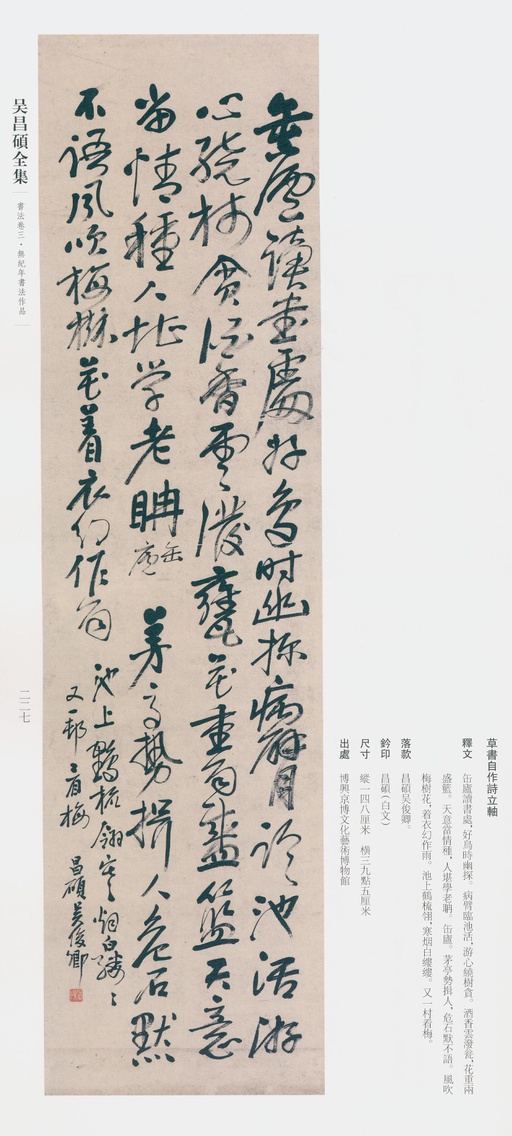 草書自作詩立軸
釋文 缶廬讀書處，好鳥時幽探。病臂臨池活，游心繞樹貪。酒香雲潑瓮，花重雨
盛籃。天意當情種，人堪學老聃。缶廬。茅亭勢揖人，危石默不語。風吹
梅樹花，着衣幻作雨。池上鶴梳翎，寒烟白縷縷。又一村看梅。
落款 昌碩吴俊卿。
鈐印 昌碩（白文）
尺寸 縱一四八厘米 橫三九點五厘米
出處 博興京博文化藝術博物館
缶廬讀書處好鳥時幽探病臂臨池活游
心繞樹貪酒香雲潑甕花重雨盛籃天意
當情種人堪學老聃 缶廬 茅亭勢揖人危石默
不語風吹梅樹花着衣幻作雨 池上鶴梳翎寒烟白縷〻
又一邨〻看梅 昌碩吴俊卿
吴昌碩全集 書法卷三·無紀年書法作品
二二七